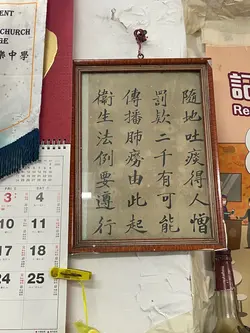 隨地吐痰得人憎
罰款二千有可能
傳播肺癆由此起
衞生法例要遵行
ENT
CHURCH
GE
樂中學
3 4
10 11
17 18
24 25
記
Re